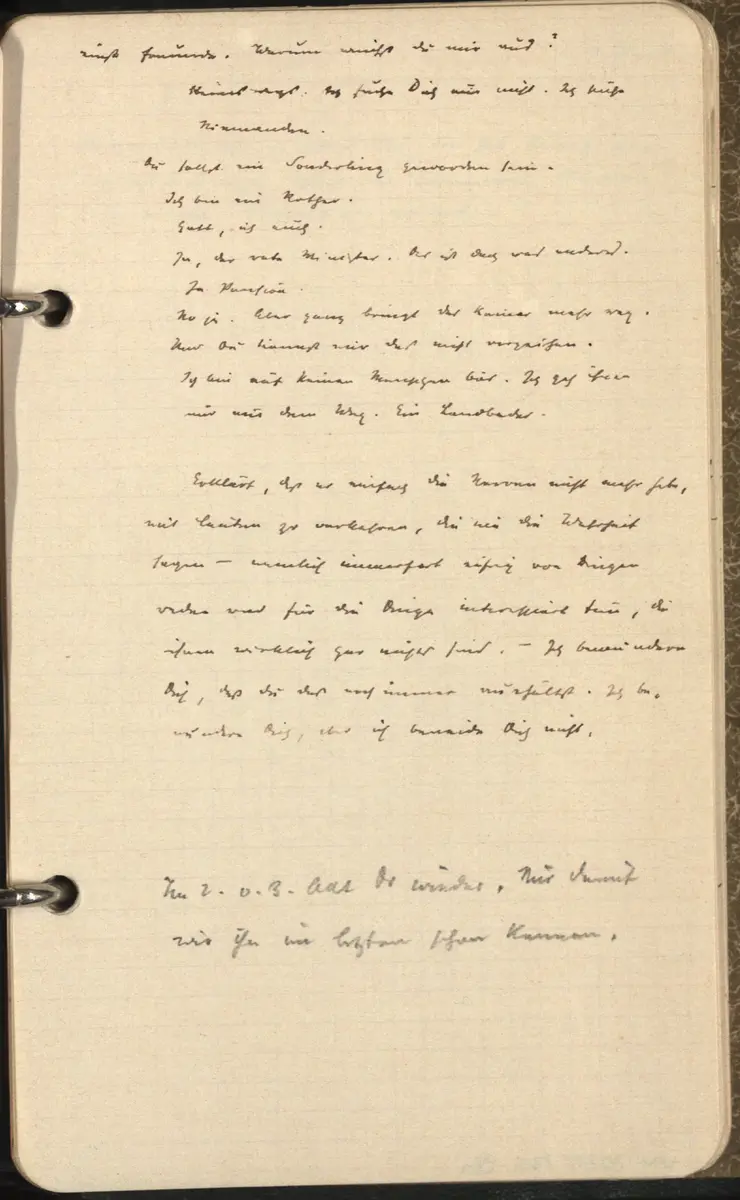 einst Freunde. Warum weichst du mir aus?
Keineswegs. Ich suche Dich nur nicht. Ich suche
Niemanden.
Du sollst ein Sonderling geworden sein.
Ich bin ein Rother.
Gott, ich auch.
Ja, der rote Minister. Das ist doch was anderes.
In Pension.
No ja. Aber ganz bringt das Keiner mehr weg.
Nur Du kannst mir das nicht verzeihen.
Ich bin auf keinen Menschen bös. Ich geh ihnen
nur aus dem Weg. Ein Landbader.
Erklärt, daß er einfach die Nerven nicht mehr habe,
mit Leuten zu verkehren, die nie die Wahrheit
sagen – nemlich immerfort eifrig von Dingen
reden und für die Dinge interessiert tun, die
ihnen wirklich gar nichts sind. – Ich bewundere
Dich, daß du das noch immer aushältst. Ich be-
wundere Dich, aber ich beneide Dich nicht.
Im 2. o. 3. Akt Dr wieder. Nur damit
wir ihn im letzten schon kennen.